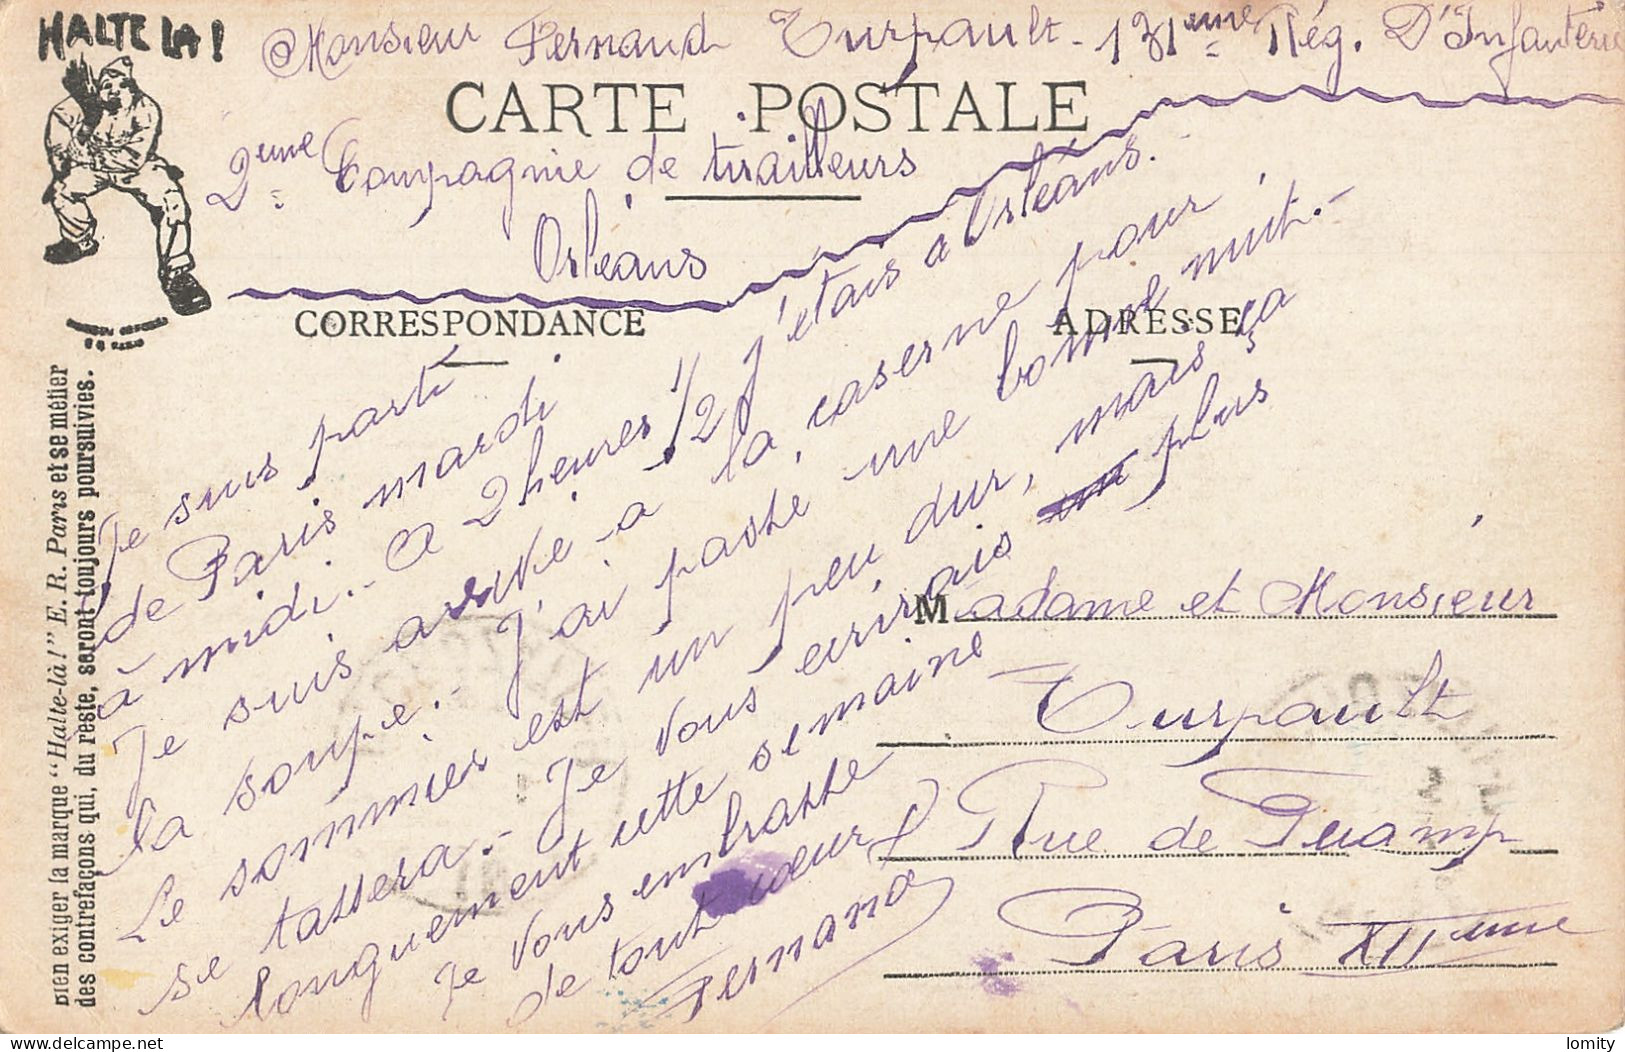 HALTE LA !
Monsieur Fernand Turpault - 131eme Rég. D'Infanterie
CARTE POSTALE
2eme Compagnie de tirailleurs
Orléans
CORRESPONDANCE
ADRESSE
Je suis parti
de Paris mardi
à midi. - A 2 heures 1/2 j'étais à Orléans. -
Je suis arrivé - à la caserne pour
la soupe. - J'ai passé une bonne nuit. -
Le sommier est un peu dur, mais ça
se tassera. - Je vous écrirais plus
longuement cette semaine
Je vous embrasse
de tout cœur
Fernand
Madame et Monsieur
Turpault
Rue de
Paris XIIeme
Bien exiger la marque "Halte-là!" E. R. Paris et se méfier
des contrefaçons qui, du reste, seront toujours poursuivies.
delcampe.net
lomity